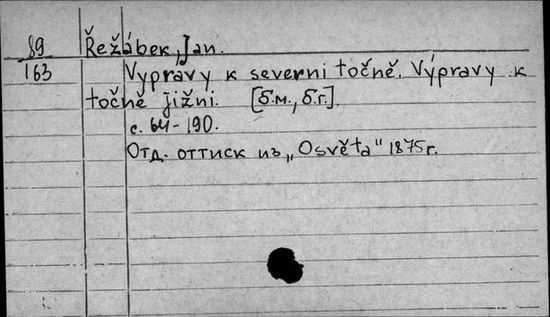 89 Řežábek, Jan.
163 Vypravy k severni točně. Výpravy k
točně jižni. [б.м., б.г.].
с. 64-190.
Отд. оттиск из „Osvěta" 1875 г.